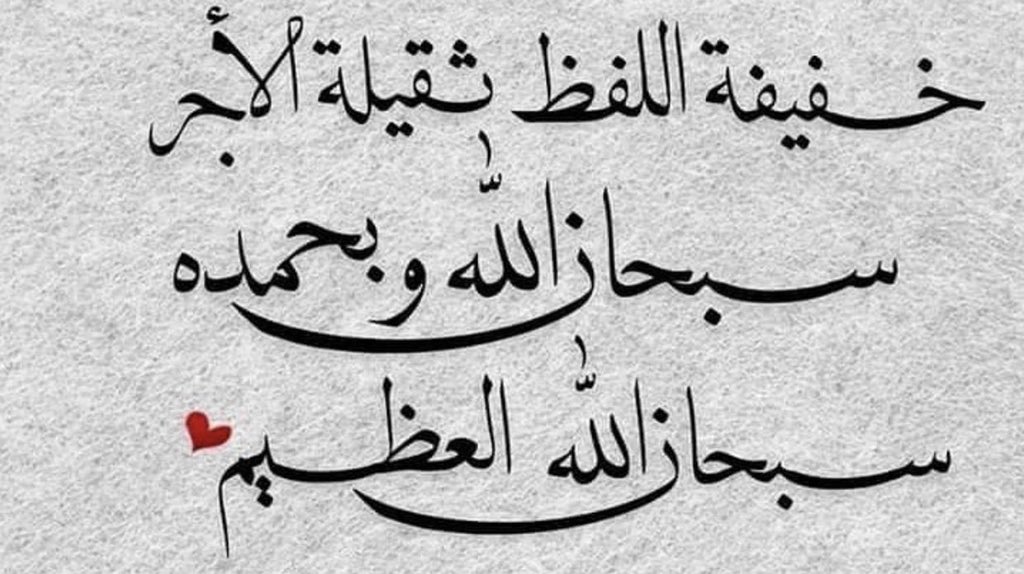 خفيفة اللفظ ثقيلة الأجر
سبحان الله وبحمده
سبحان الله العظيم